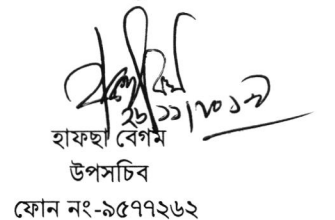 ২৮/১১/২০১৮
হাফছা বেগম
উপসচিব
ফোন নং-৯৫৭৭২৬২